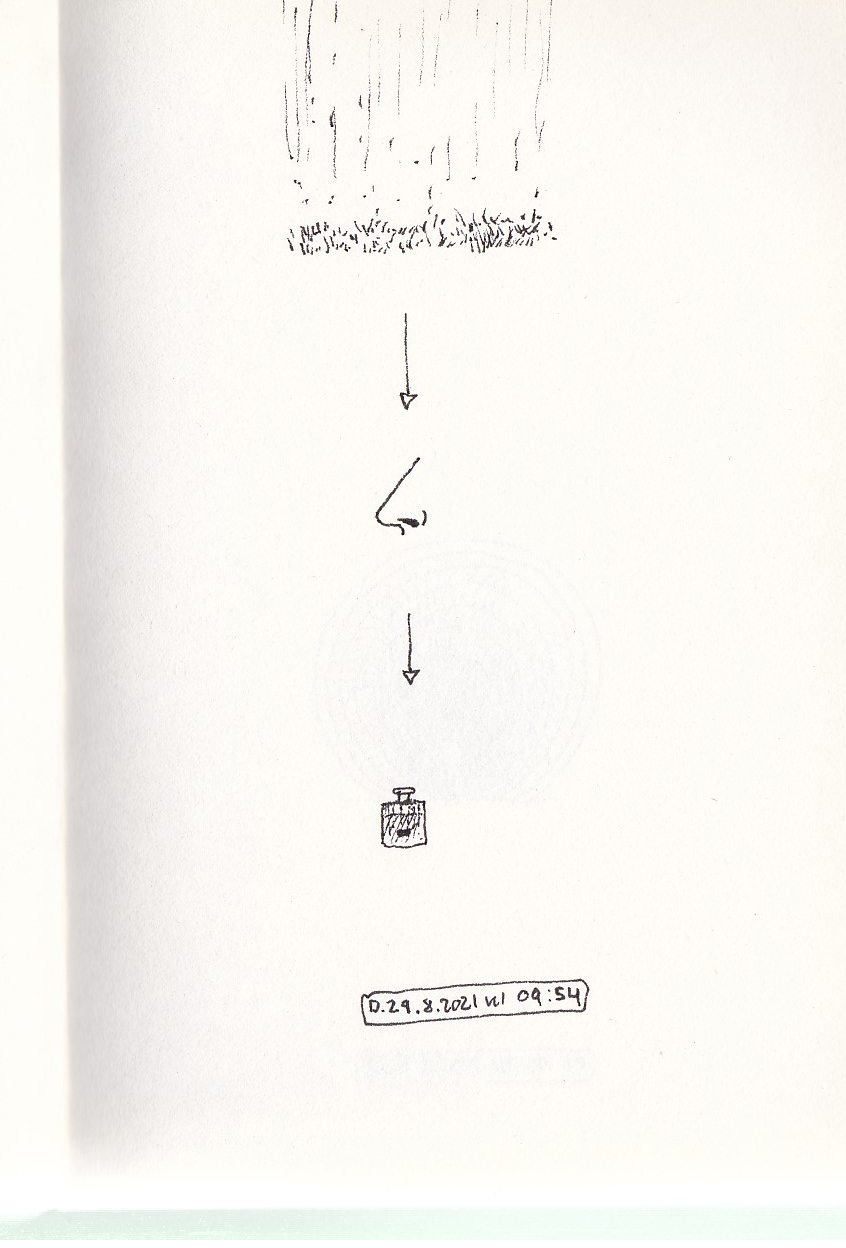 D.29.8.2021 kl 09:54